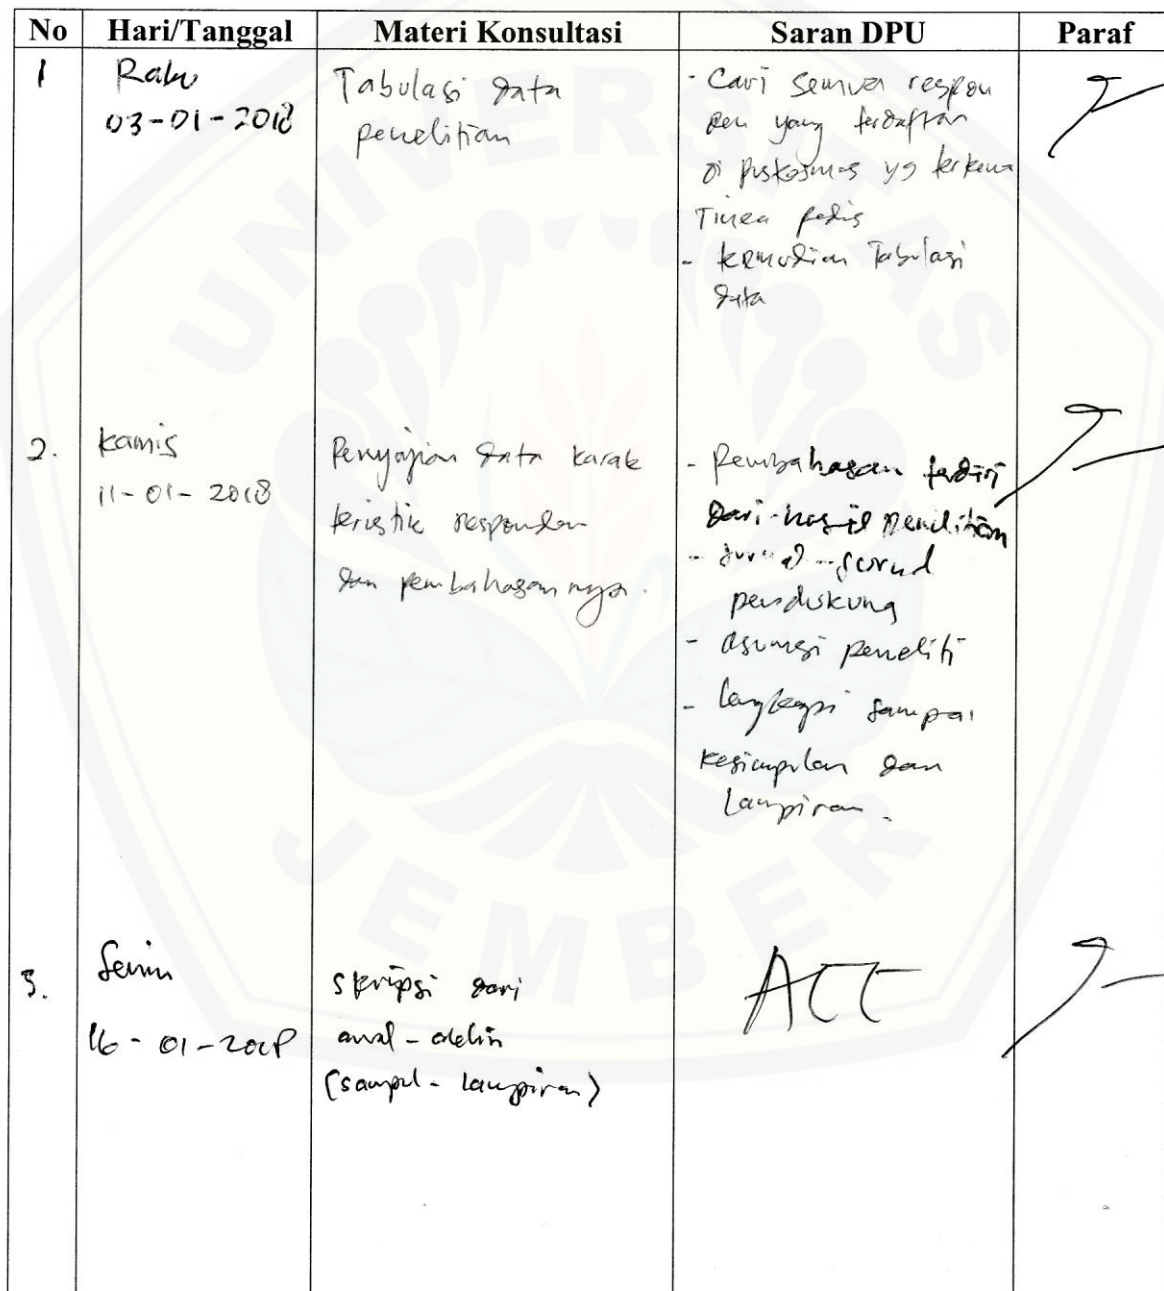 No Hari/Tanggal Materi Konsultasi Saran DPU Paraf
1 Rabu
03-01-2018
Tabulasi data
penelitian
- Cari semua respon
den yang terdaftar
di puskesmas yg terkena
Tinea pedis
- kemudian Tabulasi
data
2. kamis
11-01-2018
Penyajian data karak
teristik responden
dan pembahasannya.
- pembahasan terdiri
dari hasil penelitian
- jurnal-jurnal
pendukung
- asumsi peneliti
- lengkapi sampai
kesimpulan dan
Lampiran.
3. Senin
16-01-2018
skripsi dari
awal - akhir
(sampul - lampiran)
ACC
UNIVERSITAS
JEMBER